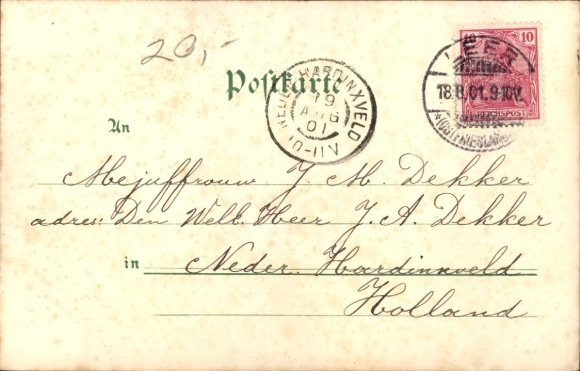 20,-
10 10
LEER
18.8.01. 9-10V.
(OSTFRIESLAND)
REICHSPOST
Postkarte
NEDER HARDINXVELD
19
AUG
01
10-11V
An
Mejuffrouw J. M. Dekker
adres: Den Well. Heer J. A. Dekker
in Neder. Hardinxveld
Holland